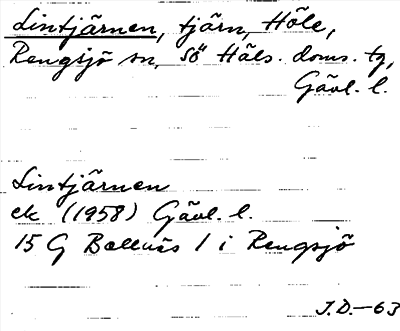 Lintjärnen, tjärn, Höle,
Rengsjö sn, Sö Häls. doms. tg,
Gävl. l.
Lintjärnen
ek (1958) Gävl. l.
15 G Bollnäs 1 i Rengsjö
J.D.—63